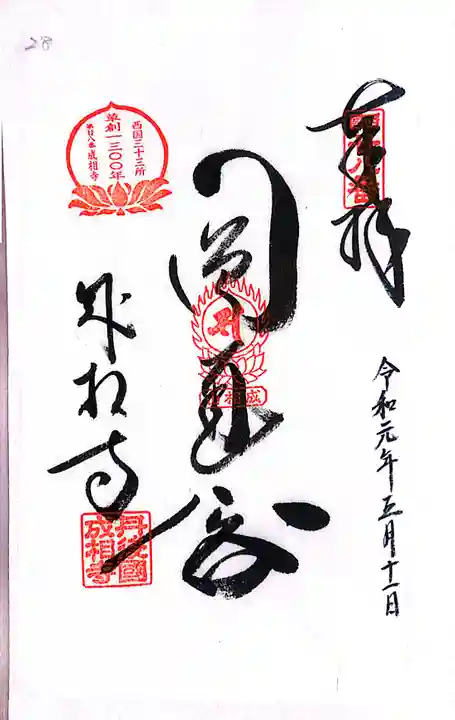 28
奉拝
令和元年五月十一日
圓通閣
成相寺
西国三十三所
草創一三〇〇年
第廿八番 成相寺
丹後國
成相寺